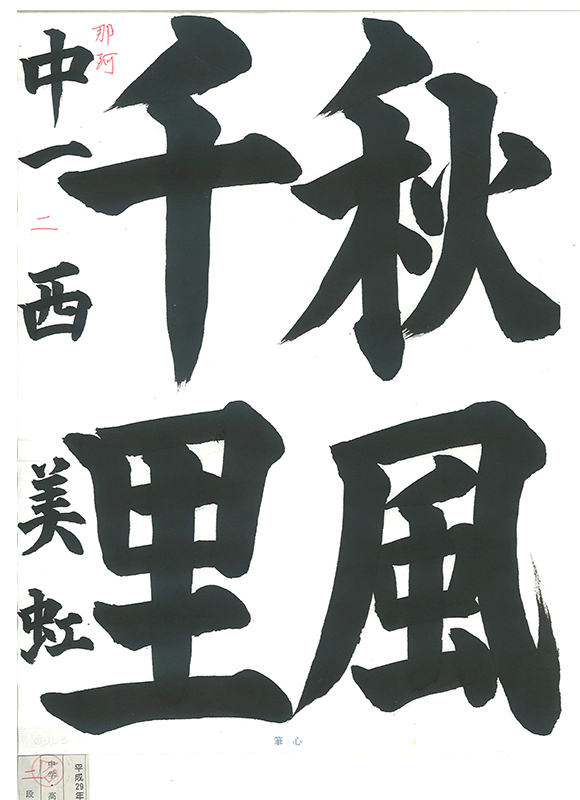 秋風
千里
中一 西 美虹
那珂
二
筆心
平成29年
中学・高
二
段